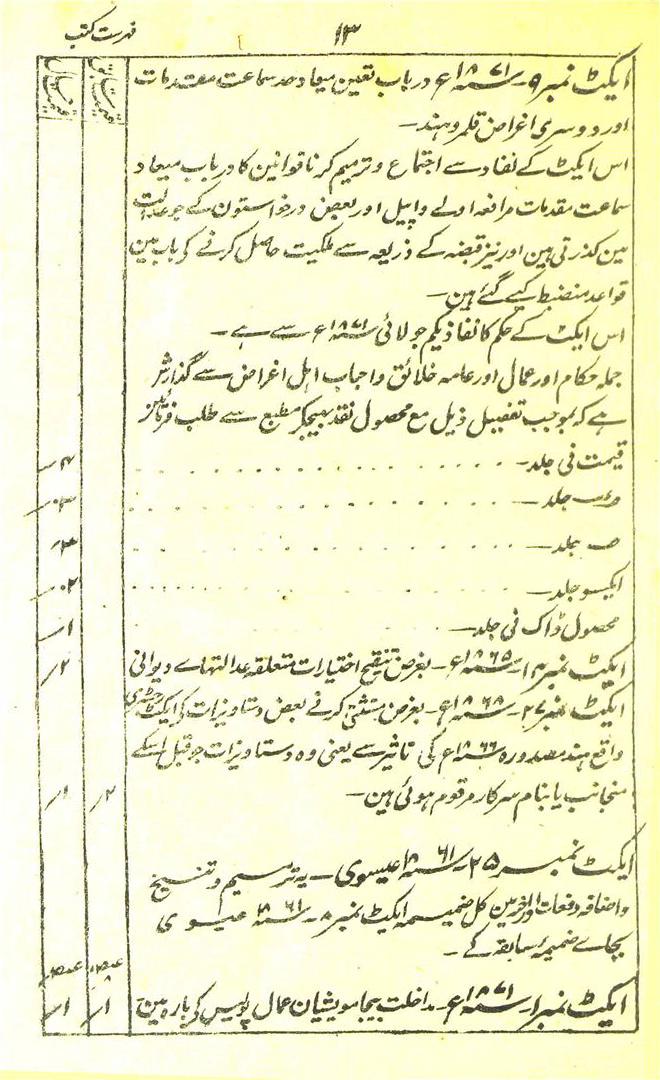 ۱۳
فہرست کتب
ایکٹ نمبر ۹۔ ۱۸۷۱ء در باب تعین میعاد حد سماعت مقدمات
اور دوسری اغراض قلمرو ہند۔
اس ایکٹ کے نفاد سے اجتماع و ترمیم کرنا قوانین کا در باب میعاد
سماعت مقدمات مرافعہ اولے و اپیل اور بعض درخواستون کے جو عدالت
مین گذرتی ہین اور نیز قبضہ کے ذریعہ سے ملکیت حاصل کرنے کے باب مین
قواعد منضبط کیے گئے ہین۔
اس ایکٹ کے حکم کا نفاذ یکم جولائی ۱۸۷۱ء سے ہے۔
جملہ حکام اور عمال اور عامہ خلائق و احباب اہل اغراض سے گذارش
ہے کہ بموجب تفصیل ذیل مع محصول نقد بھیجکر مطبع سے طلب فرمائین
قیمت فی جلد۔
جلد۔
جلد۔
ایکسو جلد۔
محصول ڈاک فی جلد۔ ۱ر
ایکٹ نمبر ۱۴۔ ۱۸۶۵ء۔ بغرض تنقیح اختیارات متعلقہ عدالتہاے دیوانی ۲ر
ایکٹ نمبر ۲۷۔ ۱۸۶۸ء۔ بغرض مستثنیٰ کرنے بعض دستاویزات کے ایکٹ رجسٹری
واقع ہند مصدورہ ۱۸۶۶ء کی تاثیر سے یعنی وہ دستاویزات جو قبل اسکے
منجانب یا بنام سرکار مرقوم ہوئی ہین۔ ۲ر ۱ر
ایکٹ نمبر ۲۵۔ ۱۸۶۱ عیسوی۔ یہ ترمیم و تنسیخ
و اضافہ دفعات اور آخر مین کل ضمیمہ ایکٹ نمبر ۸۔ ۱۸۶۱ عیسوی
بجاے ضمیمہ سابقہ کے۔
ایکٹ نمبر ۱۔ ۱۸۷۱ء۔ مداخلت بیجا مویشیان عمال پولیس کے بارہ مین ۱ر ۱ر